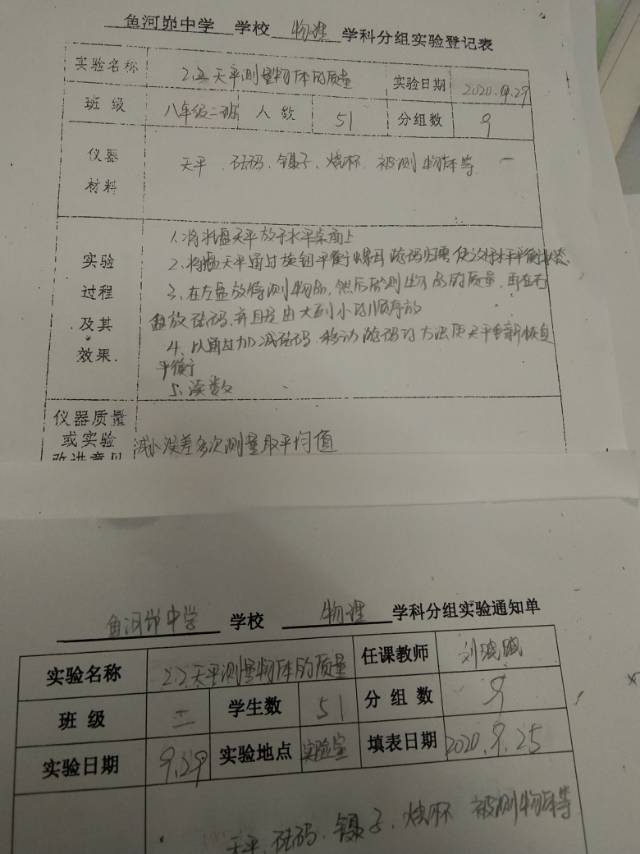 鱼河峁中学 学校 物理 学科分组实验登记表
实验名称 2.2天平测量物体的质量 实验日期 2020.9.29
班级 八年级二班 人数 51 分组数 9
仪器材料 天平、砝码、镊子、烧杯、被测物体等
实验过程及其效果
1、将托盘天平放于水平桌面上
2、将托盘天平通过旋钮平衡螺母 游码归零 使
3、在左盘放待测物品,然后 测 的质量,再在右
盘放砝码,并且是由大到小的顺序放
4、以通过加减砝码、移动游码的方法使天平重新恢复
平衡
5、读数
仪器质量或实验改进意见 减小误差多次测量取平均值
鱼河峁中学 学校 物理 学科分组实验通知单
实验名称 2.2天平测量物体的质量 任课教师 刘
班级 二 学生数 51 分组数 9
实验日期 9.29 实验地点 实验室 填表日期 2020.9.25
天平、砝码、镊子、烧杯 被测物体等